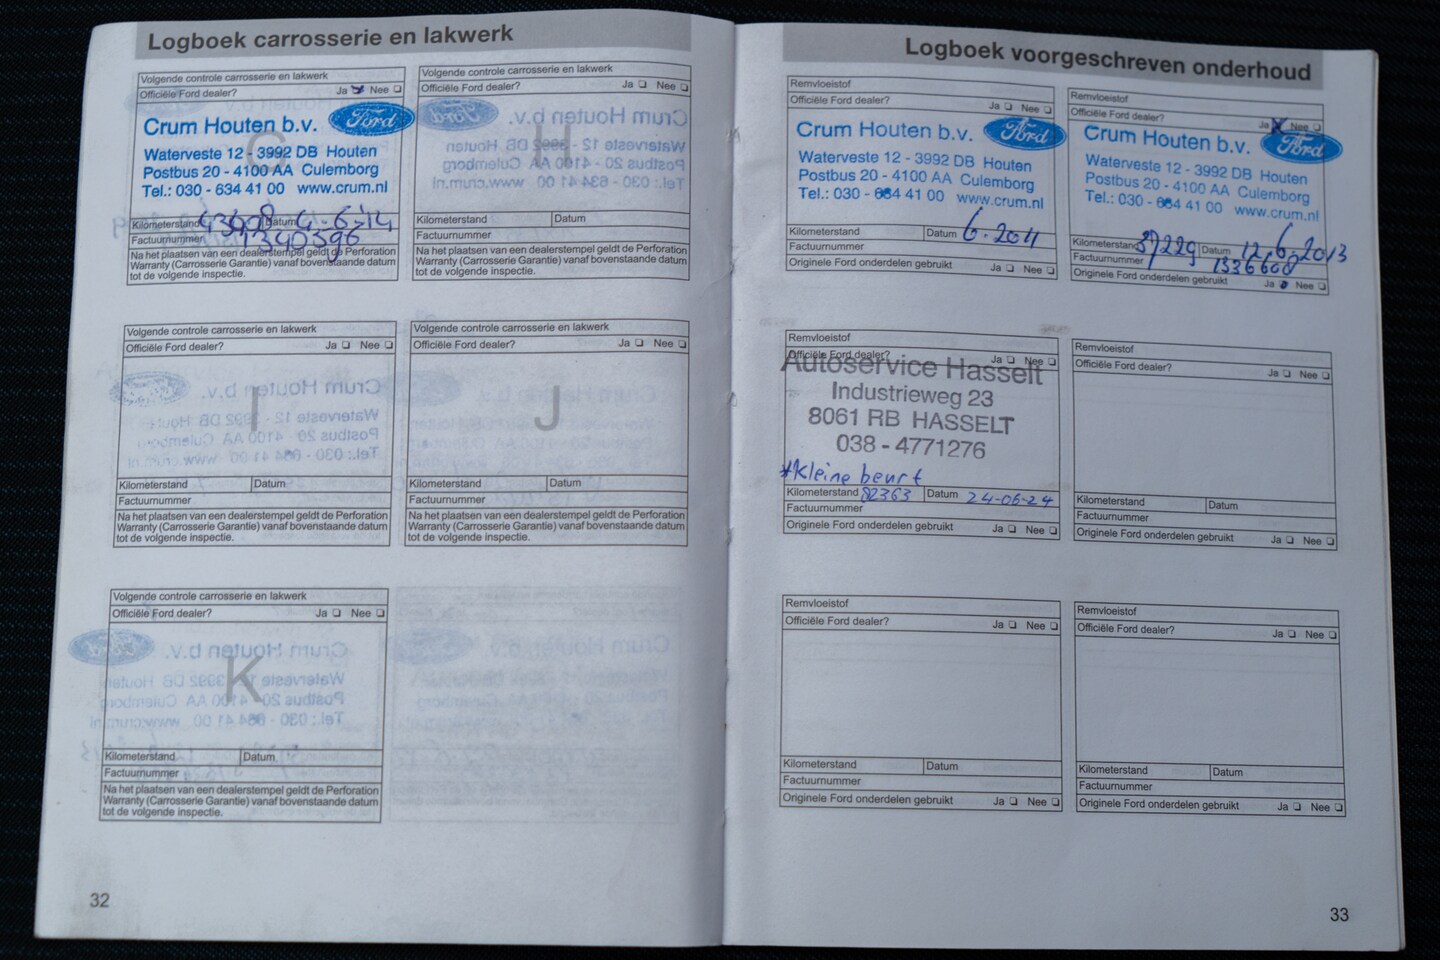 Logboek carrosserie en lakwerk
Volgende controle carrosserie en lakwerk
Officiële Ford dealer? Ja Nee
G
Crum Houten b.v. Ford
Waterveste 12 - 3992 DB Houten
Postbus 20 - 4100 AA Culemborg
Tel.: 030 - 634 41 00 www.crum.nl
Kilometerstand Datum 4-6-'14
Factuurnummer 1340596
Na het plaatsen van een dealerstempel geldt de Perforation
Warranty (Carrosserie Garantie) vanaf bovenstaande datum
tot de volgende inspectie.
Volgende controle carrosserie en lakwerk
Officiële Ford dealer? Ja Nee
H
Kilometerstand Datum
Factuurnummer
Na het plaatsen van een dealerstempel geldt de Perforation
Warranty (Carrosserie Garantie) vanaf bovenstaande datum
tot de volgende inspectie.
Volgende controle carrosserie en lakwerk
Officiële Ford dealer? Ja Nee
I
Kilometerstand Datum
Factuurnummer
Na het plaatsen van een dealerstempel geldt de Perforation
Warranty (Carrosserie Garantie) vanaf bovenstaande datum
tot de volgende inspectie.
Volgende controle carrosserie en lakwerk
Officiële Ford dealer? Ja Nee
J
Kilometerstand Datum
Factuurnummer
Na het plaatsen van een dealerstempel geldt de Perforation
Warranty (Carrosserie Garantie) vanaf bovenstaande datum
tot de volgende inspectie.
Volgende controle carrosserie en lakwerk
Officiële Ford dealer? Ja Nee
K
Kilometerstand Datum
Factuurnummer
Na het plaatsen van een dealerstempel geldt de Perforation
Warranty (Carrosserie Garantie) vanaf bovenstaande datum
tot de volgende inspectie.
32
Logboek voorgeschreven onderhoud
Remvloeistof
Officiële Ford dealer? Ja Nee
Crum Houten b.v. Ford
Waterveste 12 - 3992 DB Houten
Postbus 20 - 4100 AA Culemborg
Tel.: 030 - 634 41 00 www.crum.nl
Kilometerstand Datum 6-2011
Factuurnummer
Originele Ford onderdelen gebruikt Ja Nee
Remvloeistof
Officiële Ford dealer? Ja Nee
Crum Houten b.v. Ford
Waterveste 12 - 3992 DB Houten
Postbus 20 - 4100 AA Culemborg
Tel.: 030 - 634 41 00 www.crum.nl
Kilometerstand 37229 Datum 12-6-2013
Factuurnummer 1336608
Originele Ford onderdelen gebruikt Ja Nee
Remvloeistof
Officiële Ford dealer? Ja Nee
Autoservice Hasselt
Industrieweg 23
8061 RB HASSELT
038 - 4771276
*kleine beurt
Kilometerstand 82363 Datum 24-06-24
Factuurnummer
Originele Ford onderdelen gebruikt Ja Nee
Remvloeistof
Officiële Ford dealer? Ja Nee
Kilometerstand Datum
Factuurnummer
Originele Ford onderdelen gebruikt Ja Nee
Remvloeistof
Officiële Ford dealer? Ja Nee
Kilometerstand Datum
Factuurnummer
Originele Ford onderdelen gebruikt Ja Nee
Remvloeistof
Officiële Ford dealer? Ja Nee
Kilometerstand Datum
Factuurnummer
Originele Ford onderdelen gebruikt Ja Nee
33